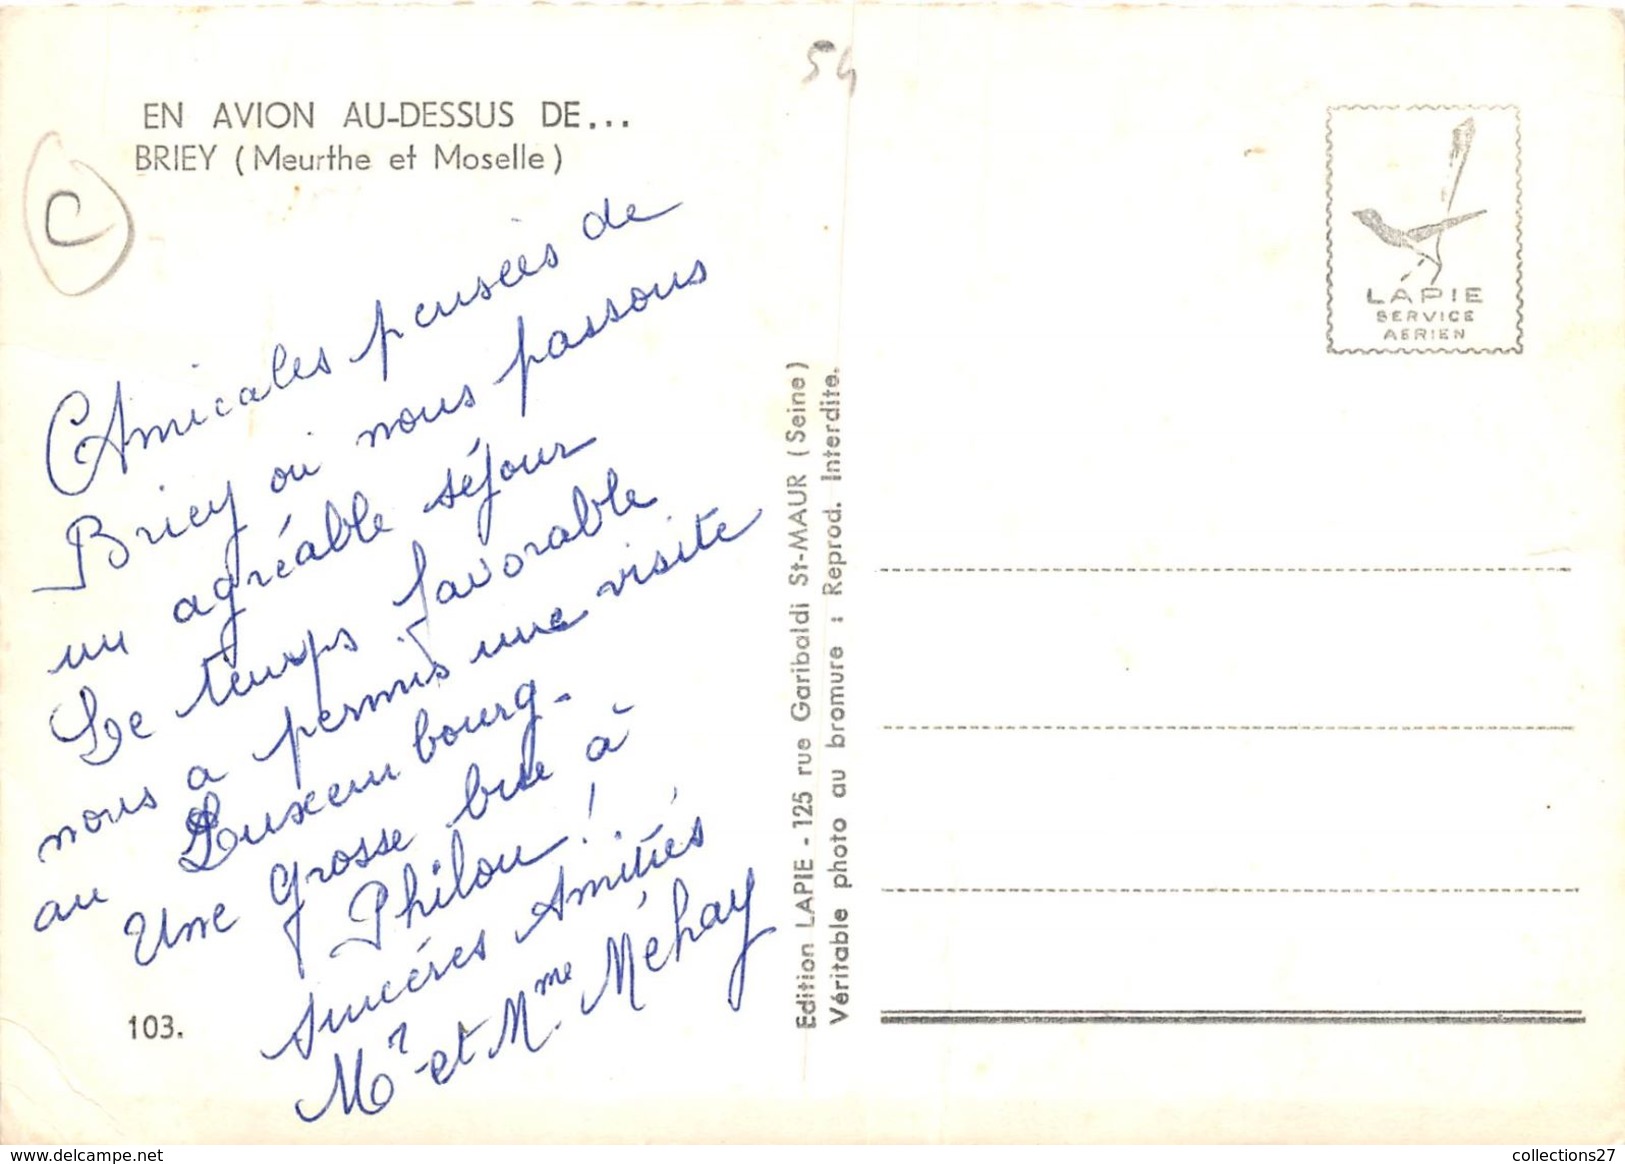 54
EN AVION AU-DESSUS DE...
BRIEY (Meurthe et Moselle)
C
Amicales pensées de
Briey où nous passons
un agréable séjour
Le temps favorable
nous a permis une visite
au Luxembourg.
Une grosse bise à
Philou!
Sincéres Amitiés
Mr et Mme Méhay
103.
Edition LAPIE - 125 rue Garibaldi St-MAUR (Seine)
Véritable photo au bromure : Reprod. Interdite.
LAPIE
SERVICE
AERIEN
www.delcampe.net
collections27